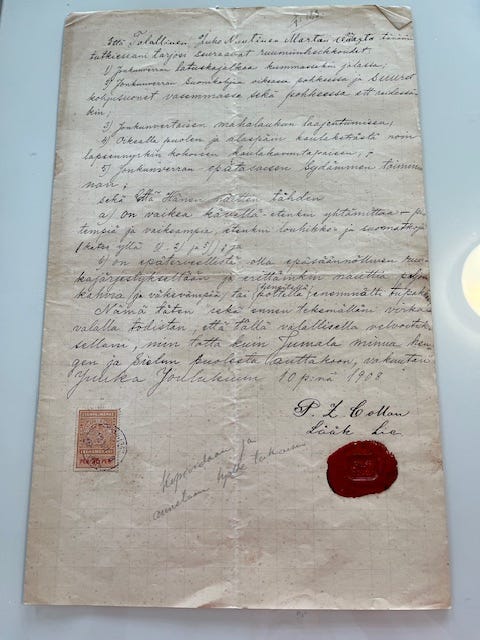 Että Talollinen, Juho Nuutinen Martan kylästä tänään
tutkiessani tarjosi seuraavat ruumiinheikkoudet:
1) Jonkunverran latuskajalkaa kummassakin jalassa;
2) Jonkunverran suonikohjua oikeassa pohkeessa ja suuret
kohjusuonet vasemmassa sekä pohkeessa että reidessä-
kin;
3) Jonkunvertaisen mahalaukun laajentumisen;
4) Oikealla puolen ja alaspäin kaulakstästä noin
lapsennyrkin kokoisen kaulakasvantaisen;
5) Jonkunverran epätasaisen Sydämmen toimin-
nan;
sekä Että Hänen näitten tähden
a) on vaikea kävellä etenkin yhtämittaa
ja vaikeampia, etenkin louhikko- ja suomatkoja
(katso yllä 1) 2) ja 5)) ja
b) on epäterveellistä olla epäsäännöllisen ruo-
kajärjestyksellään ja erittäinkin nauttia
kahvia ja väkeviämpiä, tai poltella enemmältä tupakkaa
Nämä täten sekä ennen tekemälläni virka-
valalla todistan, että tällä valallisella velvoituk-
sellani, niin totta kuin Jumala minua hen-
gen ja sielun puolesta auttakoon, vakuutan
Juuka Joulukuun 10 p:nä 1908
P. Z. Collan
Lääk Lis
ja